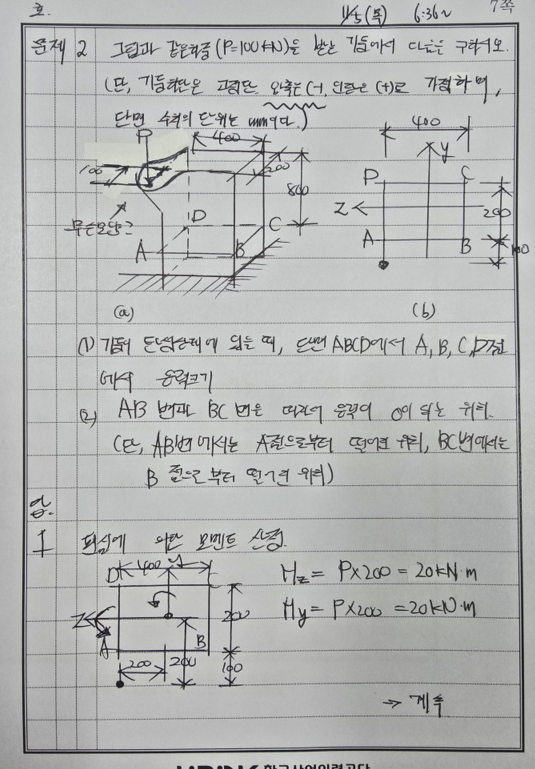 호.
11/5(목) 6:36~ 7쪽
문제 2 그림과 같은하중(P=100kN)을 받는 기둥에서 다음을 구하시오.
(단, 기둥하단은 고정단 압축은(-), 인장은 (+)로 가정하며,
단면 수력의 단위는 mm이다.)
P
400
100
200
800
무슨모양?
D
A B C
(a)
400
y
D C
Z
200
A B
100
(b)
(1) 기둥이 탄성상태에 있을 때, 단면 ABCD에서 A, B, C, D점
에서 응력크기
(2) AB 변과 BC 변을 따라서 응력이 0이 되는 위치.
(단, AB변에서는 A점으로부터 떨어진 위치, BC변에서는
B 점으로부터 떨어진 위치)
답.
I 편심에 의한 모멘트 산정.
D 400 y
Z
200
A B
200 200 100
Mz = P×200 = 20kN·m
My = P×200 = 20kN·m
→ 계속